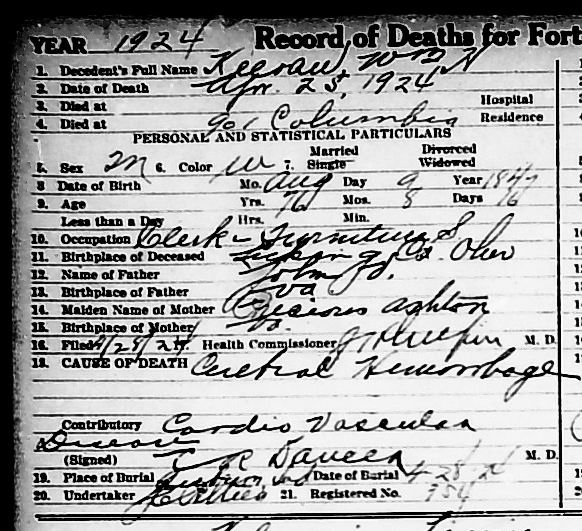 YEAR 1924 Record of Deaths for Fort
1. Decedent's Full Name Keeran Wm H
2. Date of Death Apr. 25, 1924
3. Died at Hospital
4. Died at 901 Columbia Residence
PERSONAL AND STATISTICAL PARTICULARS
5. Sex M 6. Color W 7. Married Single Divorced Widowed
8 Date of Birth Mo. Aug Day 9 Year 1847
9. Age Yrs. 76 Mos. 8 Days 16
Less than a Day Hrs. Min.
10. Occupation Clerk - Furniture S
11. Birthplace of Deceased Licking Co. Ohio
12. Name of Father John
13. Birthplace of Father Va
14. Maiden Name of Mother Ashton
15. Birthplace of Mother Va.
16. Filed 4/28/24 Health Commissioner M. D.
18. CAUSE OF DEATH Cerebral Hemorrhage
Contributory Cardio Vascular
Disease
(Signed) M. D.
19. Place of Burial Date of Burial 4-28-24
20. Undertaker 21. Registered No. 354